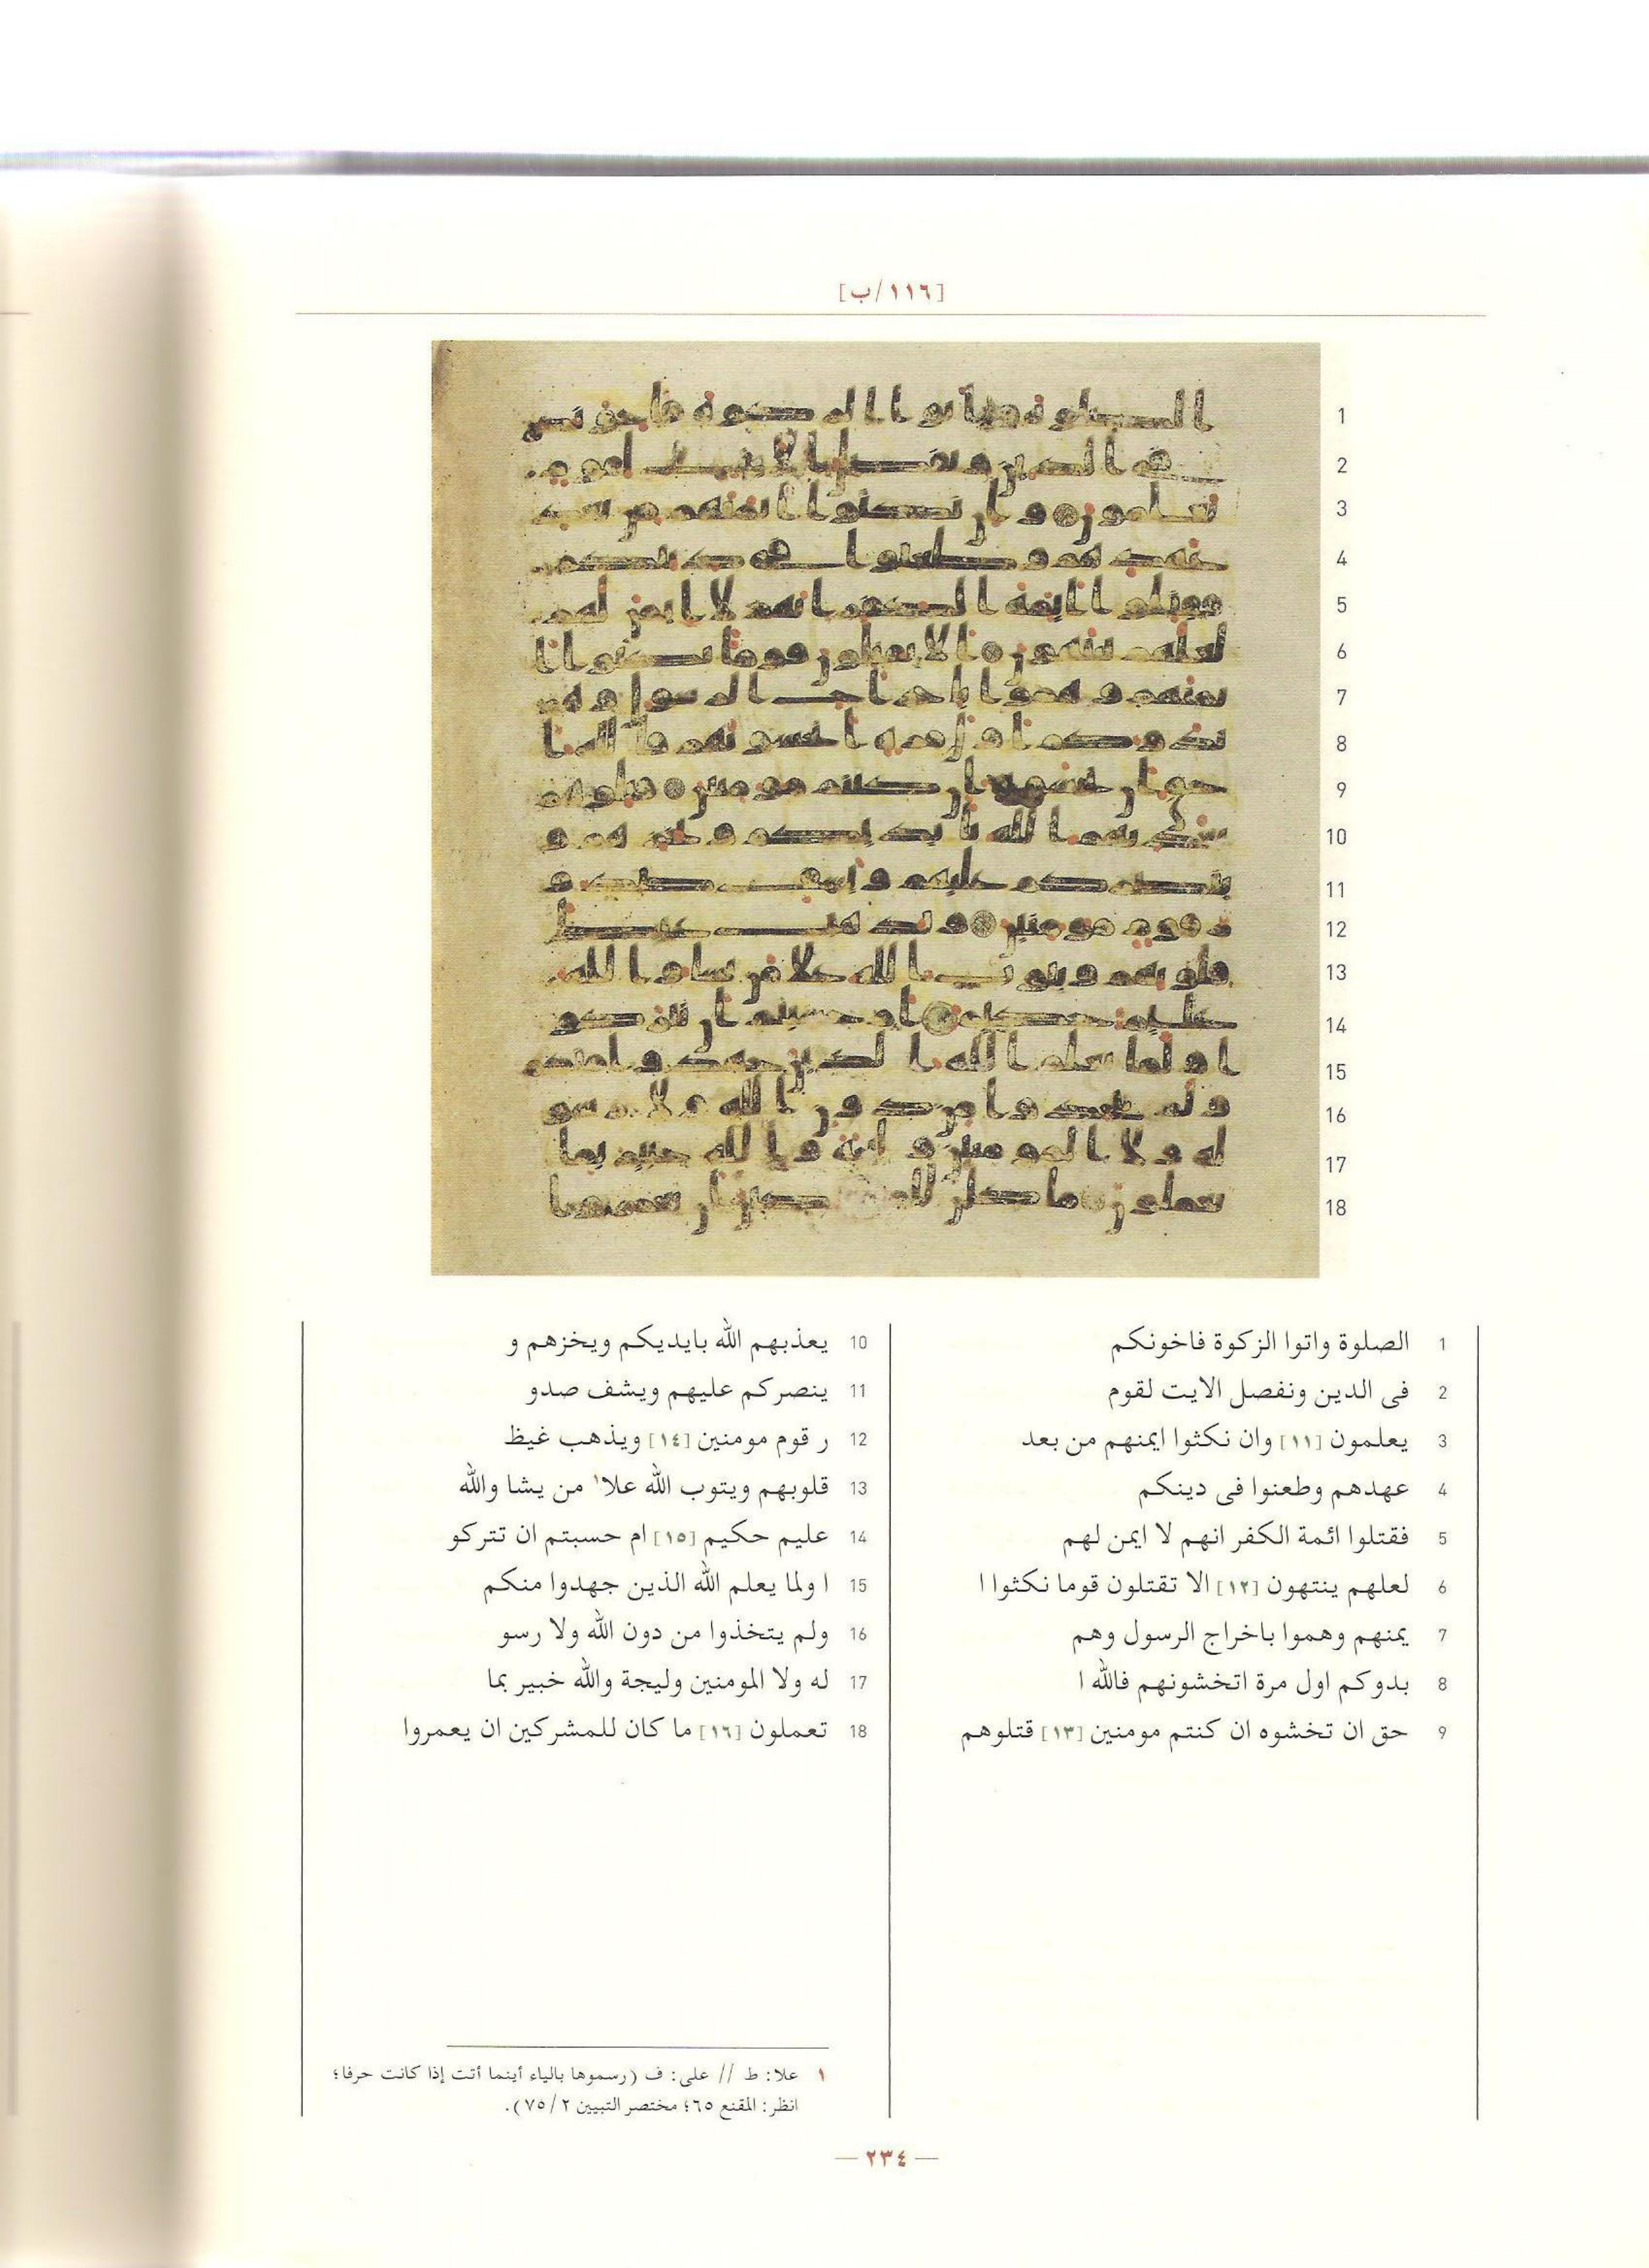 [١١٦/ب]
1 الصلوة واتوا الزكوة فاخونكم
2 فى الدين ونفصل الايت لقوم
3 يعلمون [١١] وان نكثوا ايمنهم من بعد
4 عهدهم وطعنوا فى دينكم
5 فقتلوا ائمة الكفر انهم لا ايمن لهم
6 لعلهم ينتهون [١٢] الا تقتلون قوما نكثوا ا
7 يمنهم وهموا باخراج الرسول وهم
8 بدوكم اول مرة اتخشونهم فالله ا
9 حق ان تخشوه ان كنتم مومنين [١٣] قتلوهم
10 يعذبهم الله بايديكم ويخزهم و
11 ينصركم عليهم ويشف صدو
12 ر قوم مومنين [١٤] ويذهب غيظ
13 قلوبهم ويتوب الله علا١ من يشا والله
14 عليم حكيم [١٥] ام حسبتم ان تتركو
15 ا ولما يعلم الله الذين جهدوا منكم
16 ولم يتخذوا من دون الله ولا رسو
17 له ولا المومنين وليجة والله خبير بما
18 تعملون [١٦] ما كان للمشركين ان يعمروا
١ علا: ط // على: ف (رسموها بالياء أينما أتت إذا كانت حرفا؛
انظر: المقنع ٦٥؛ مختصر التبيين ٢/ ٧٥).
— ٢٣٤ —